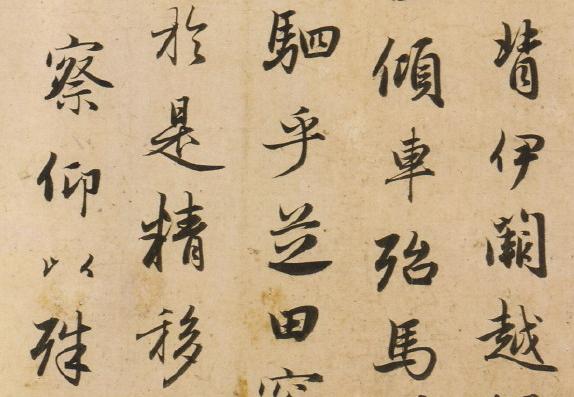 背伊闕越
傾車殆馬
駟乎芝田
於是精移
察仰以殊